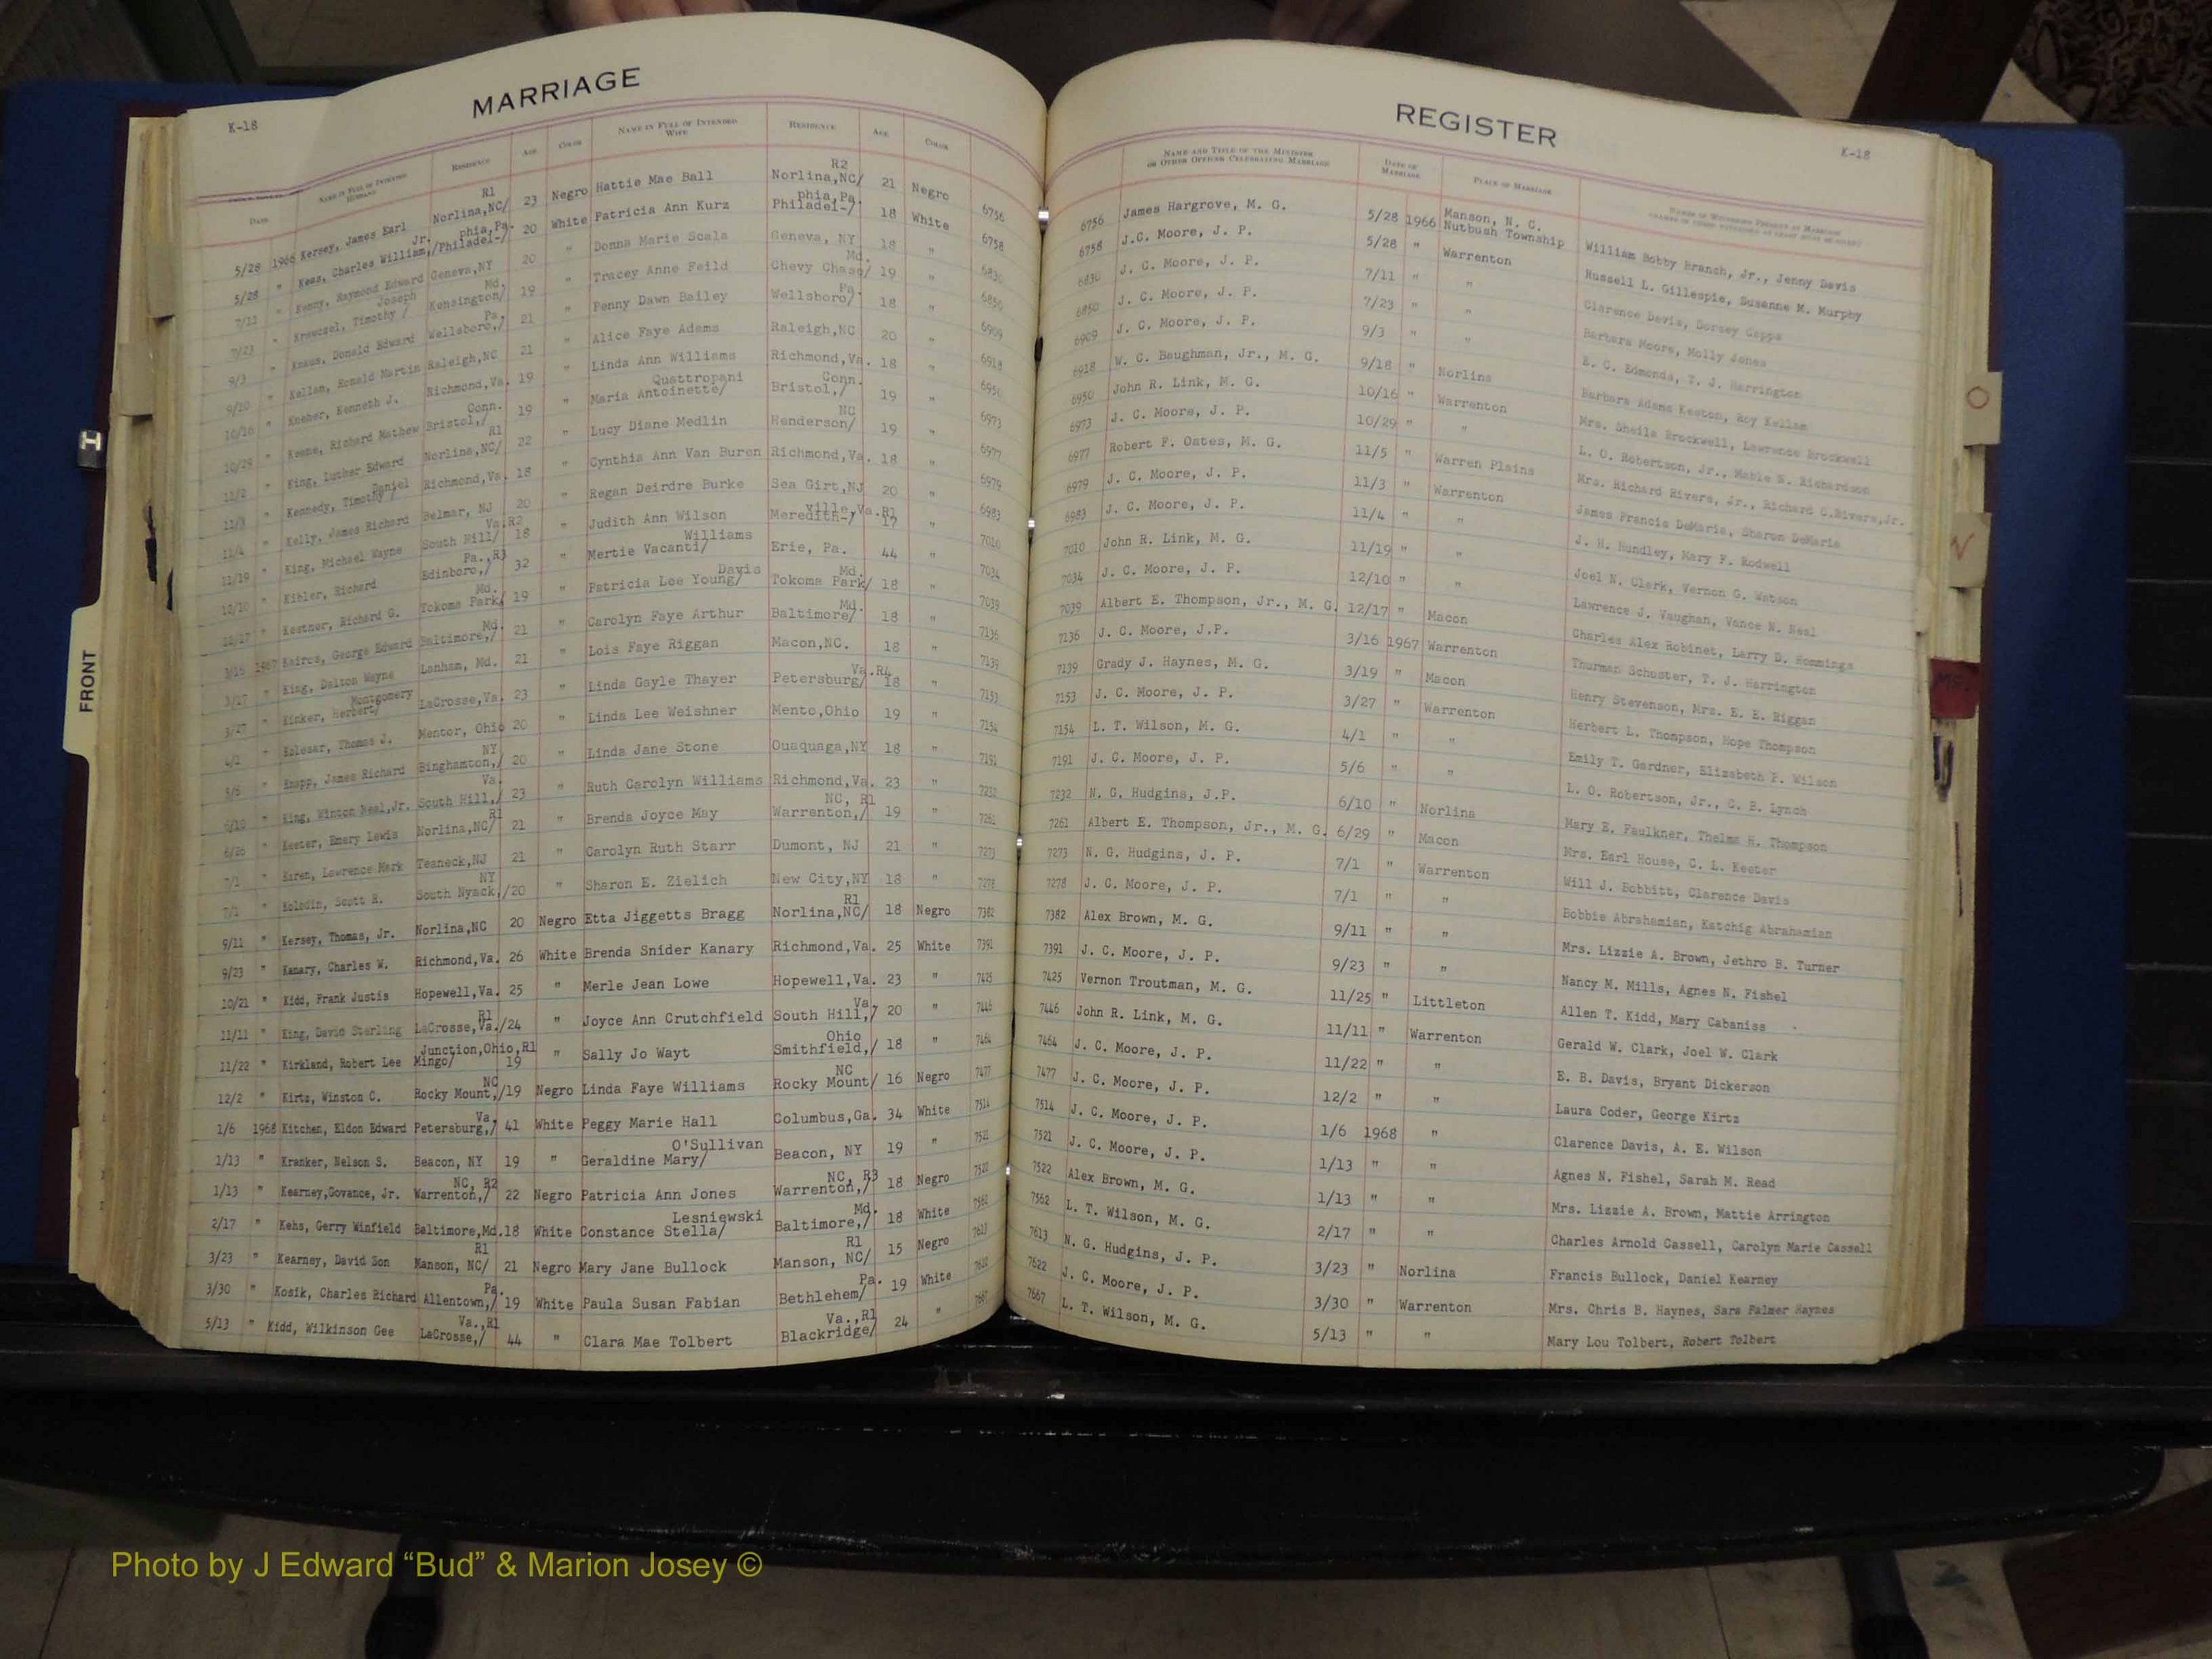 MARRIAGE
K-18
DATE NAME IN FULL OF INTENDED HUSBAND RESIDENCE AGE COLOR NAME IN FULL OF INTENDED WIFE RESIDENCE AGE COLOR
5/28 1966 Kersey, James Earl Norlina,NC/ R1 23 Negro Hattie Mae Ball Norlina,NC/ R2 21 Negro 6756
5/28 " Keas, Charles William,/ Jr. Philadel-/ phia,Pa. 20 White Patricia Ann Kurz Philadel-/ phia,Pa. 18 White 6758
7/11 " Kenny, Raymond Edward Geneva,NY 20 " Donna Marie Scala Geneva, NY 18 " 6830
7/23 " Krawczel, Timothy / Joseph Kensington/ Md. 19 " Tracey Anne Feild Chevy Chase/ Md. 19 " 6850
9/3 " Knaus, Donald Edward Wellsboro,/ Pa. 21 " Penny Dawn Bailey Wellsboro/ Pa. 18 " 6909
" Kellam, Ronald Martin Raleigh,NC 21 " Alice Faye Adams Raleigh,NC 20 " 6918
10/16 " Kneher, Kenneth J. Richmond,Va. 19 " Linda Ann Williams Richmond,Va. 18 " 6950
10/29 " Keene, Richard Mathew Bristol,/ Conn. 19 " Maria Antoinette/ Quattropani Bristol,/ Conn. 19 " 6973
" King, Luther Edward Norlina,NC/ R1 22 " Lucy Diane Medlin Henderson/ NC 19 " 6977
11/3 " Kennedy, Timothy/ Daniel Richmond,Va. 18 " Cynthia Ann Van Buren Richmond,Va. 18 " 6979
11/4 " Kelly, James Richard Belmar, NJ 20 " Regan Deirdre Burke Sea Girt,NJ 20 " 6983
11/19 " King, Michael Wayne South Hill/ Va.R2 18 " Judith Ann Wilson Meredith-/ ville,Va.R1 17 " 7010
12/10 " Kibler, Richard Edinboro,/ Pa.,R3 32 " Mertie Vacanti/ Williams Erie, Pa. 44 " 7034
12/17 " Kestner, Richard G. Tokoma Park/ Md. 19 " Patricia Lee Young/ Davis Tokoma Park/ Md. 18 " 7039
3/16 1967 Kairos, George Edward Baltimore,/ Md. 21 " Carolyn Faye Arthur Baltimore/ Md. 18 " 7136
" King, Dalton Wayne Lanham, Md. 21 " Lois Faye Riggan Macon,NC. 18 " 7139
3/27 " Kicker, Herbert/ Montgomery LaCrosse,Va. 23 " Linda Gayle Thayer Petersburg/ Va.R4 18 " 7153
4/1 " Kolesar, Thomas J. Mentor, Ohio 20 " Linda Lee Weishner Mento,Ohio 19 " 7154
5/6 " Knapp, James Richard Binghamton,/ NY 20 " Linda Jane Stone Ouaquaga,NY 18 " 7191
6/10 " King, Winton Neal,Jr. South Hill,/ Va. 23 " Ruth Carolyn Williams Richmond,Va. 23 " 7232
6/26 " Keeter, Emery Lewis Norlina,NC/ R1 21 " Brenda Joyce May Warrenton,/ NC, R1 19 " 7261
7/1 " Karen, Lawrence Mark Teaneck,NJ 21 " Carolyn Ruth Starr Dumont, NJ 21 " 7273
7/1 " Kolodin, Scott R. South Nyack,/ NY 20 " Sharon E. Zielich New City,NY 18 " 7278
9/11 " Kersey, Thomas, Jr. Norlina,NC 20 Negro Etta Jiggetts Bragg Norlina,NC/ R1 18 Negro 7382
9/23 " Kanary, Charles W. Richmond,Va. 26 White Brenda Snider Kanary Richmond,Va. 25 White 7391
10/21 " Kidd, Frank Justis Hopewell,Va. 25 " Merle Jean Lowe Hopewell,Va. 23 " 7425
11/11 " King, David Sterling LaCrosse,Va./ R1 24 " Joyce Ann Crutchfield South Hill,/ Va. 20 " 7446
11/22 " Kirkland, Robert Lee Mingo/ Junction,Ohio,R1 19 " Sally Jo Wayt Smithfield,/ Ohio 18 " 7464
12/2 " Kirtz, Winston C. Rocky Mount,/ NC 19 Negro Linda Faye Williams Rocky Mount/ NC 16 Negro 7477
1/6 1968 Kitchen, Eldon Edward Petersburg,/ Va. 41 White Peggy Marie Hall Columbus,Ga. 34 White 7514
1/13 " Kranker, Nelson S. Beacon, NY 19 " Geraldine Mary/ O'Sullivan Beacon, NY 19 " 7521
1/13 " Kearney,Govance, Jr. Warrenton,/ NC, R2 22 Negro Patricia Ann Jones Warrenton,/ NC, R3 18 Negro
2/17 " Kehs, Gerry Winfield Baltimore,Md. 18 White Constance Stella/ Lesniewski Baltimore,/ Md. 18 White 7562
3/23 " Kearney, David Son Manson, NC/ R1 21 Negro Mary Jane Bullock Manson, NC/ R1 15 Negro 7613
3/30 " Kosik, Charles Richard Allentown,/ Pa. 19 White Paula Susan Fabian Bethlehem/ Pa. 19 White 7622
5/13 " Kidd, Wilkinson Gee LaCrosse,/ Va.,R1 44 " Clara Mae Tolbert Blackridge/ Va.,R1 24 " 7667
REGISTER
K-18
NAME AND TITLE OF THE MINISTER OR OTHER OFFICER CELEBRATING MARRIAGE DATE OF MARRIAGE PLACE OF MARRIAGE NAMES OF WITNESSES PRESENT AT MARRIAGE
6756 James Hargrove, M. G. 5/28 1966 Manson, N. C. Nutbush Township William Bobby Branch, Jr., Jenny Davis
6758 J.C. Moore, J. P. 5/28 " Warrenton Russell L. Gillespie, Susanne M. Murphy
6830 J. C. Moore, J. P. 7/11 " " Clarence Davis, Dorsey Capps
6850 J. C. Moore, J. P. 7/23 " " Barbara Moore, Molly Jones
6909 J. C. Moore, J. P. 9/3 " " E. C. Edmonds, T. J. Harrington
6918 W. C. Baughman, Jr., M. G. 9/18 " Norlina Barbara Adams Keeton, Roy Kellam
6950 John R. Link, M. G. 10/16 " Warrenton Mrs. Sheila Brockwell, Lawrence Brockwell
6973 J. C. Moore, J. P. 10/29 " " L. O. Robertson, Jr., Mable W. Richardson
6977 Robert F. Oates, M. G. 11/5 " Warren Plains Mrs. Richard Rivers, Jr., Richard G.Rivers,Jr.
6979 J. C. Moore, J. P. 11/3 " Warrenton James Francis DeMaria, Sharon DeMaria
6983 J. C. Moore, J. P. 11/4 " " J. H. Hundley, Mary F. Rodwell
7010 John R. Link, M. G. 11/19 " " Joel N. Clark, Vernon G. Watson
7034 J. C. Moore, J. P. 12/10 " " Lawrence J. Vaughan, Vance N. Neal
7039 Albert E. Thompson, Jr., M. G. 12/17 " Macon Charles Alex Robinet, Larry D. Hemmings
7136 J. C. Moore, J.P. 3/16 1967 Warrenton Thurman Schuster, T. J. Harrington
7139 Grady J. Haynes, M. G. 3/19 " Macon Henry Stevenson, Mrs. E. E. Riggan
7153 J. C. Moore, J. P. 3/27 " Warrenton Herbert L. Thompson, Hope Thompson
7154 L. T. Wilson, M. G. 4/1 " " Emily T. Gardner, Elizabeth P. Wilson
7191 J. C. Moore, J. P. 5/6 " " L. O. Robertson, Jr., C. B. Lynch
7232 N. G. Hudgins, J.P. 6/10 " Norlina Mary E. Faulkner, Thelma H. Thompson
7261 Albert E. Thompson, Jr., M. G. 6/29 " Macon Mrs. Earl House, C. L. Keeter
7273 N. G. Hudgins, J. P. 7/1 " Warrenton Will J. Bobbitt, Clarence Davis
7278 J. C. Moore, J. P. 7/1 " " Bobbie Abrahamian, Katchig Abrahamian
7382 Alex Brown, M. G. 9/11 " " Mrs. Lizzie A. Brown, Jethro B. Turner
7391 J. C. Moore, J. P. 9/23 " " Nancy M. Mills, Agnes N. Fishel
7425 Vernon Troutman, M. G. 11/25 " Littleton Allen T. Kidd, Mary Cabaniss
7446 John R. Link, M. G. 11/11 " Warrenton Gerald W. Clark, Joel W. Clark
7464 J. C. Moore, J. P. 11/22 " " E. B. Davis, Bryant Dickerson
7477 J. C. Moore, J. P. 12/2 " " Laura Coder, George Kirtz
7514 J. C. Moore, J. P. 1/6 1968 " Clarence Davis, A. E. Wilson
7521 J. C. Moore, J. P. 1/13 " " Agnes N. Fishel, Sarah M. Read
7522 Alex Brown, M. G. 1/13 " " Mrs. Lizzie A. Brown, Mattie Arrington
7562 L. T. Wilson, M. G. 2/17 " " Charles Arnold Cassell, Carolyn Marie Cassell
7613 N. G. Hudgins, J. P. 3/23 " Norlina Francis Bullock, Daniel Kearney
7622 J. C. Moore, J. P. 3/30 " Warrenton Mrs. Chris B. Haynes, Sara Palmer Haynes
7667 L. T. Wilson, M. G. 5/13 " " Mary Lou Tolbert, Robert Tolbert
FRONT
O
N
Photo by J Edward “Bud” & Marion Josey ©